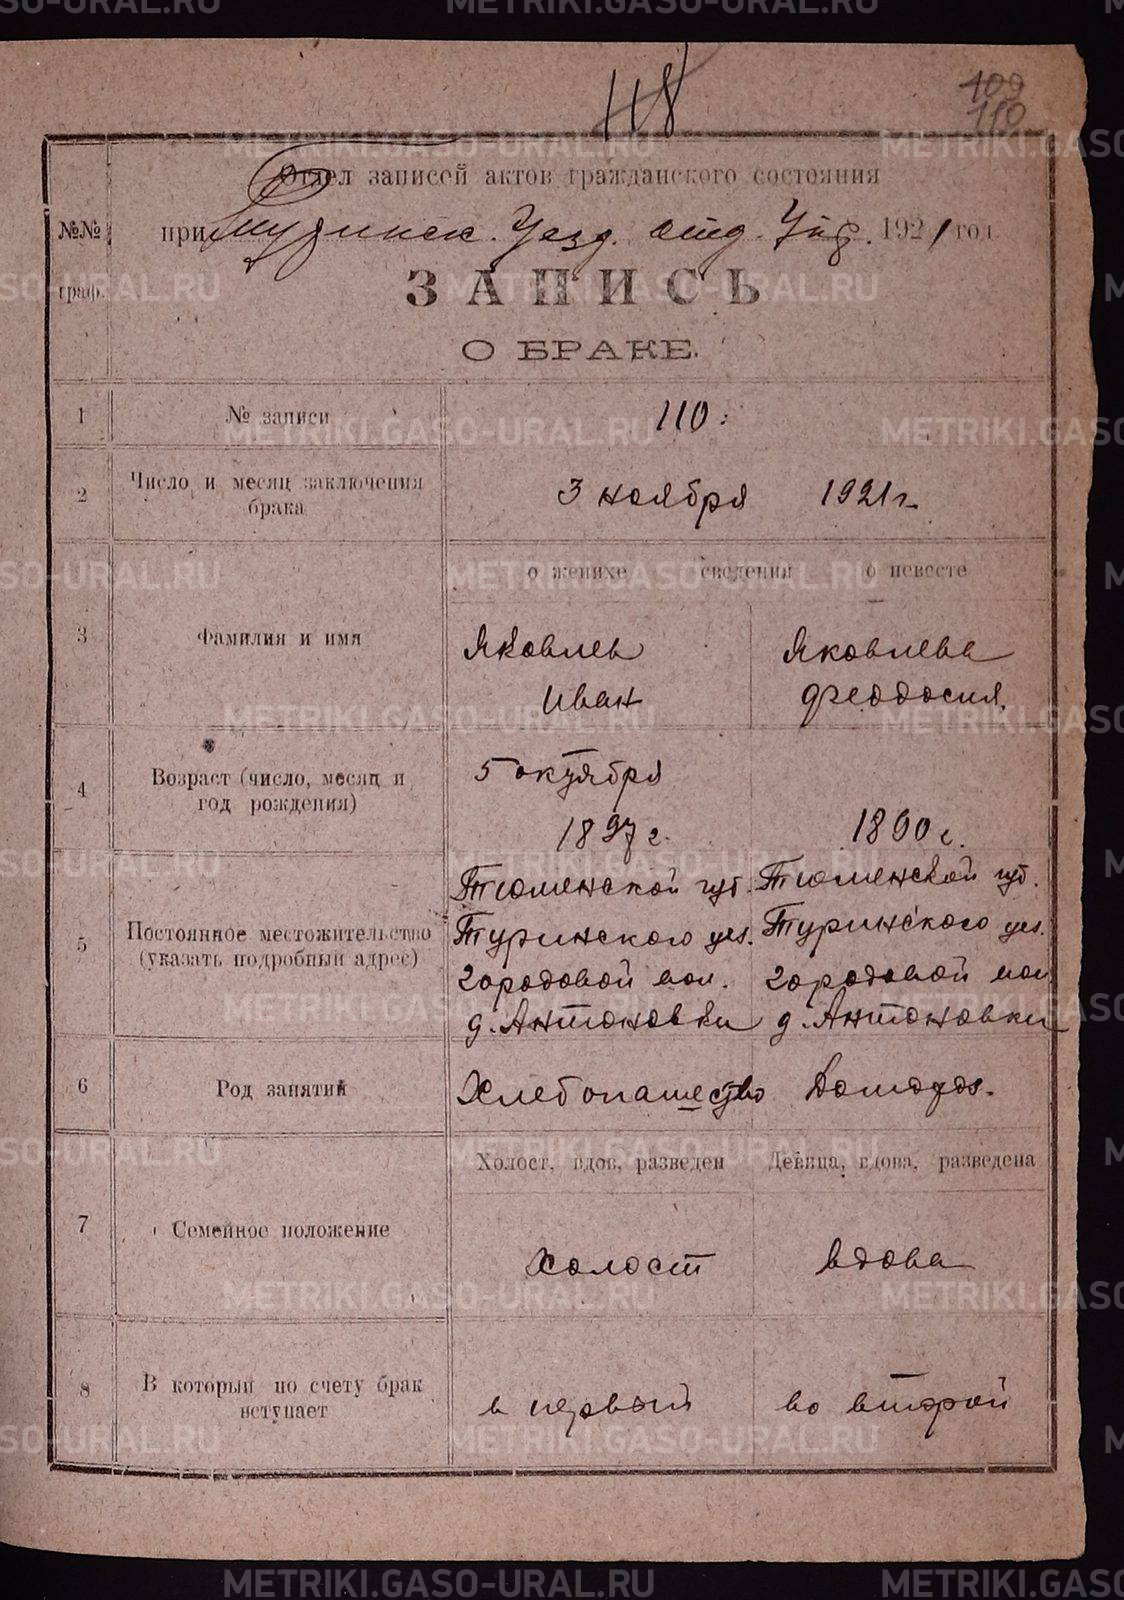 118
109
110
Отдел записей актов гражданского состояния
№№ граф.
при Туринск. Уезд. отд. Упр. 1921 год.
ЗАПИСЬ
О БРАКЕ.
1 № записи 110
2 Число и месяц заключения брака 3 ноября 1921 г.
о женихе сведения о невесте
3 Фамилия и имя
Яковлев
Иван
Яковлева
Феодосия
4 Возраст (число, месяц и год рождения)
5 октября
1897 г.
1890 г.
5 Постоянное местожительство (указать подробный адрес)
Тюменской губ.
Туринского уез.
городовой вол.
д. Антоновки
Тюменской губ.
Туринского уез.
городовой вол
д. Антоновки
6 Род занятий Хлебопашество Домохоз.
Холост, вдов, разведен Девица, вдова, разведена
7 Семейное положение холост вдова
8 В который по счету брак вступает в первый во второй
METRIKI.GASO-URAL.RU